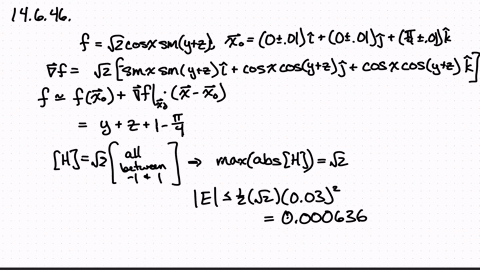 14.6.46.
f = √2cosx sin(y+z), x⃗₀ = (0±.01)î + (0±.01)ĵ + (π/4±.01)k̂
∇⃗f = √2[sinx sin(y+z)î + cosx cos(y+z)ĵ + cosx cos(y+z)k̂]
f ≃ f(x⃗₀) + ∇⃗f|x⃗₀·(x⃗-x⃗₀)
= y + z + 1 - π/4
[H] = √2[all between -1 & 1] ⇒ max(abs[H]) = √2
|E| ≤ ½(√2)(0.03)²
= 0.000636